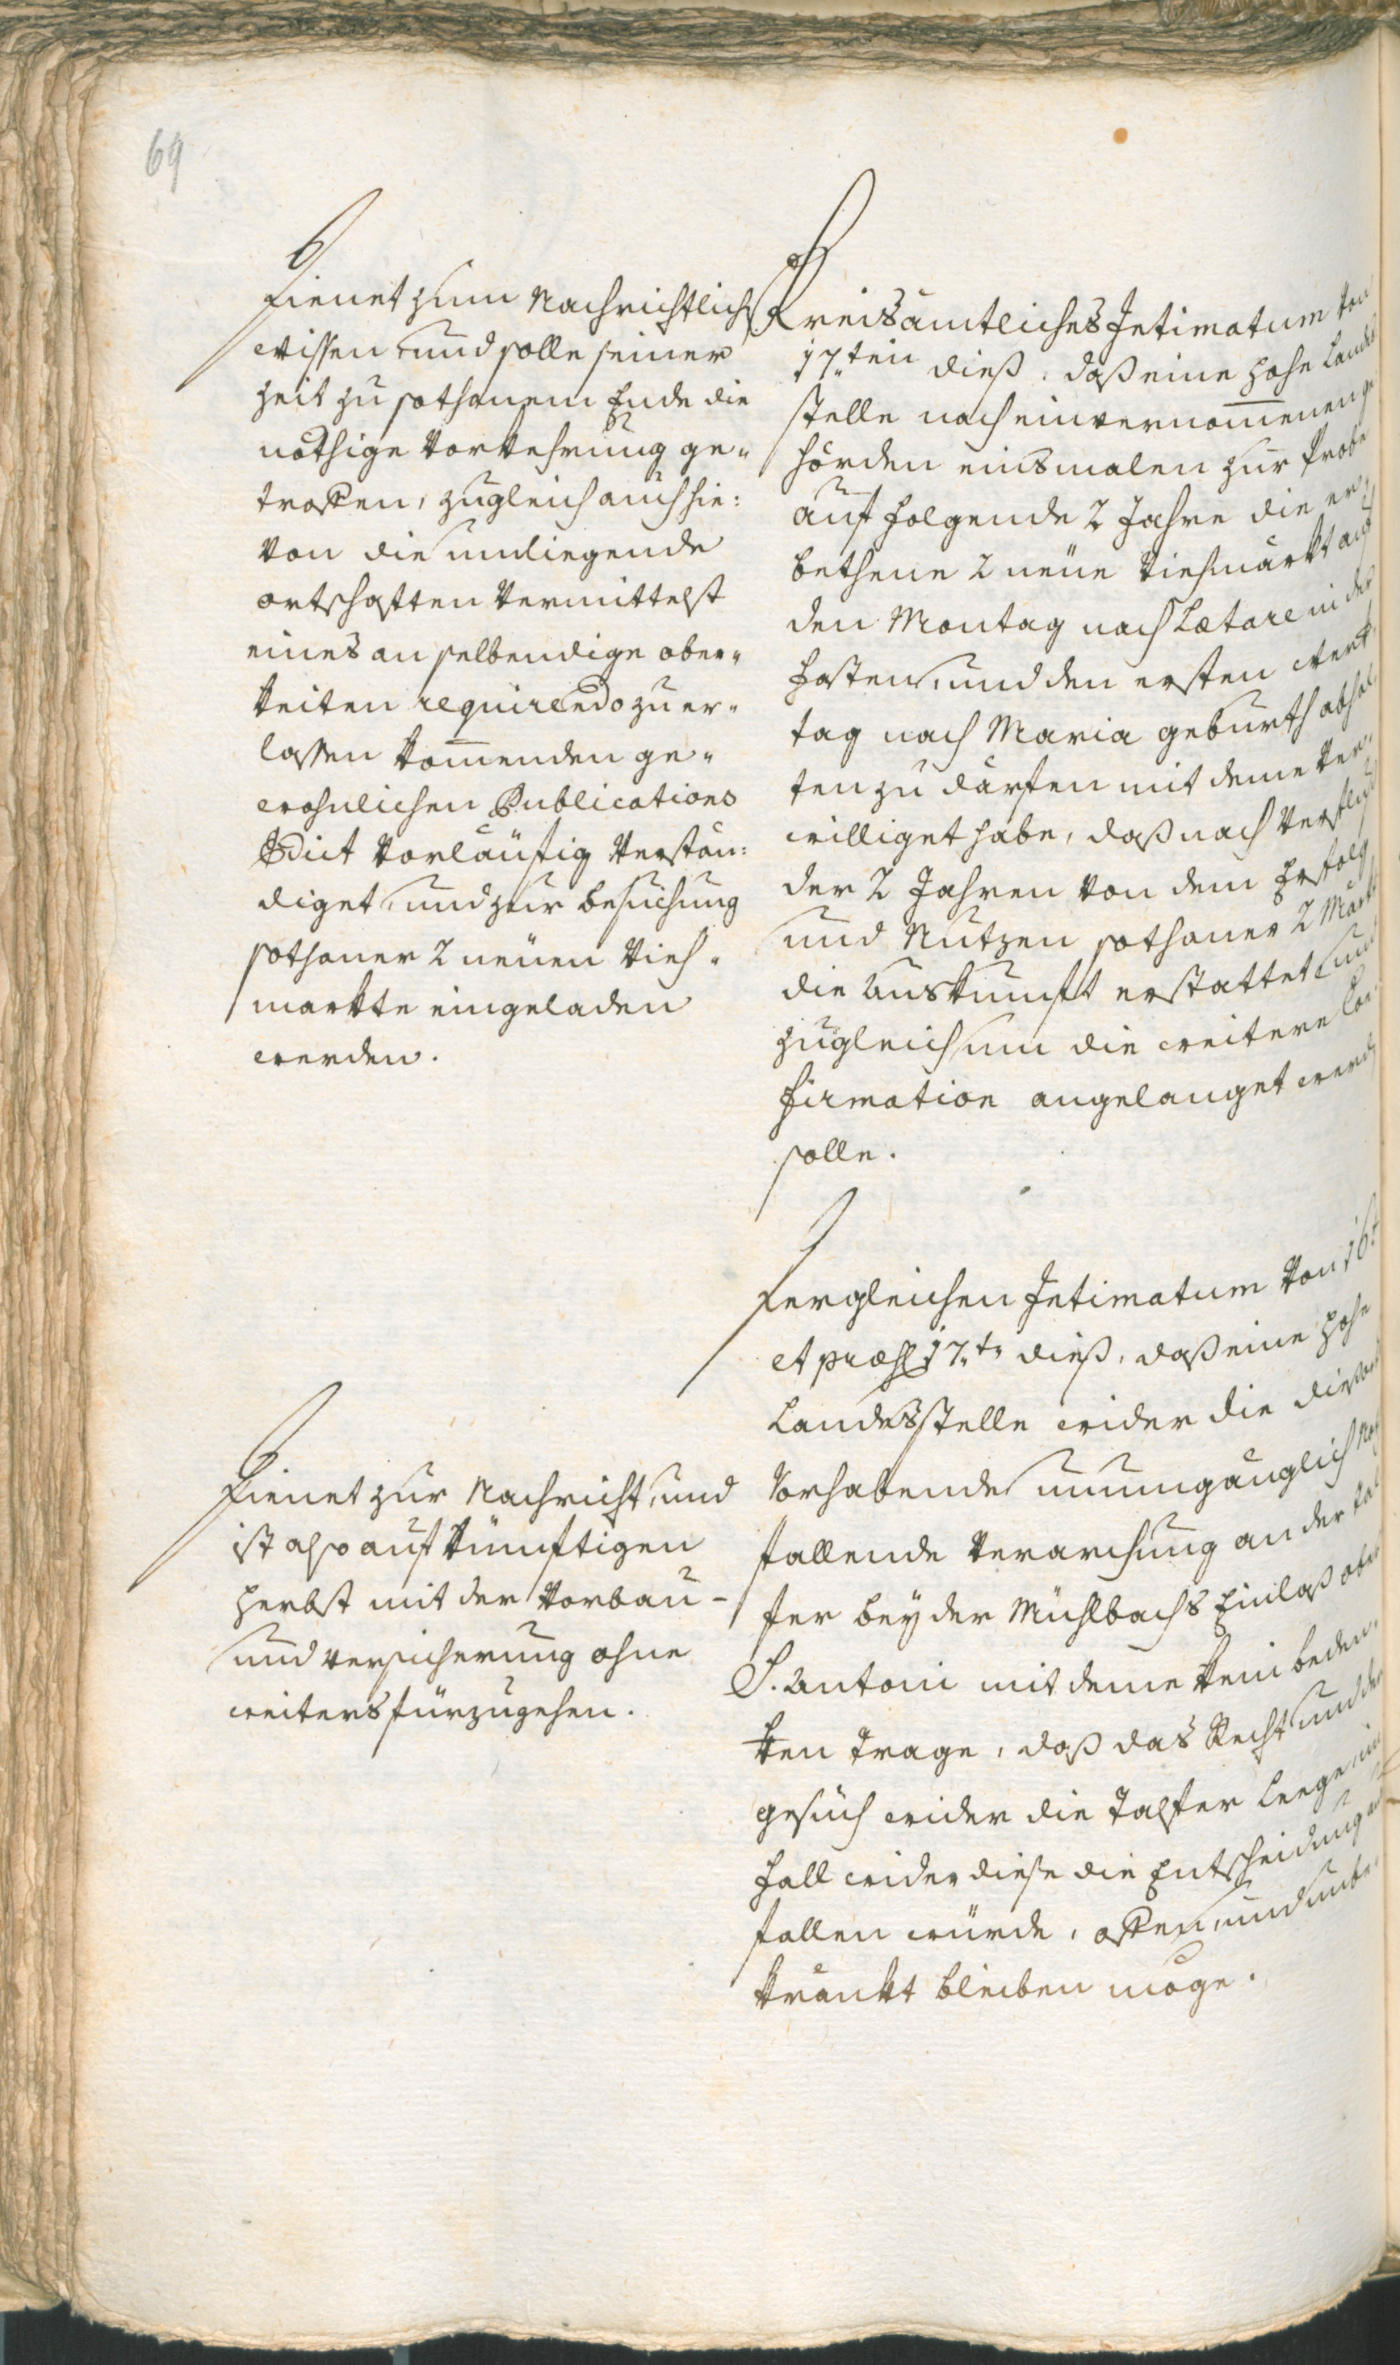 69
Dienet zum Nachrichtlich
wissen und solle seiner
Zeit zu sothanem Ende die
nöthige Vorkehrung ge„
troffen, zugleich auch hie:
von die umliegende
ortschaften vermittelst
eines an selbendige ober„
keiten requirendo zu er„
lassen kom̅enden ge„
wohnlichen Publications
Edict vorläufig verstän:
diget, und zur besuchung
sothaner 2 neuen Vieh„
markte eingeladen
werden.
Dienet zur Nachricht, und
ist also auf künftigen
Herbst mit der Vorbau-
und versicherung ohne
weiters fürzugehen.
Kreisämtliches Intimatum von
17.ten dieß, daß eine hohe Landes
stelle nach einvernom̅enen ge
hörden einsmalen zur Probe
auf folgende 2 Jahre die er„
bethene 2 neue Viehmärkt auf
den Montag nach Lætare in der
Fasten, und den ersten Werk
tag nach Maria geburth abhal
ten zu därfen mit deme ver„
williget habe, daß nach Verfluß
der 2 Jahren von dem Erfolg
und Nutzen sothaner 2 Märkt
die Auskunft erstattet, und
zugleich um die weitere Con
firmation angelanget werden
solle.
Dergleichen Intimatum von 16t
et præs 17.tn dieß, daß eine hohe
Landesstelle wider die
Vorhabende unumgänglich
fallende Verarchung an der Tal
fer bey der Mühlbachs Einlaß ober
S. Antoni mit deme kein beden„
ken trage, daß das Recht, und der
gesuch wider die Talfer Leege im
fall wider diese die Entscheidung aus
fallen würde, offen, und unbe„
kränkt bleiben möge.